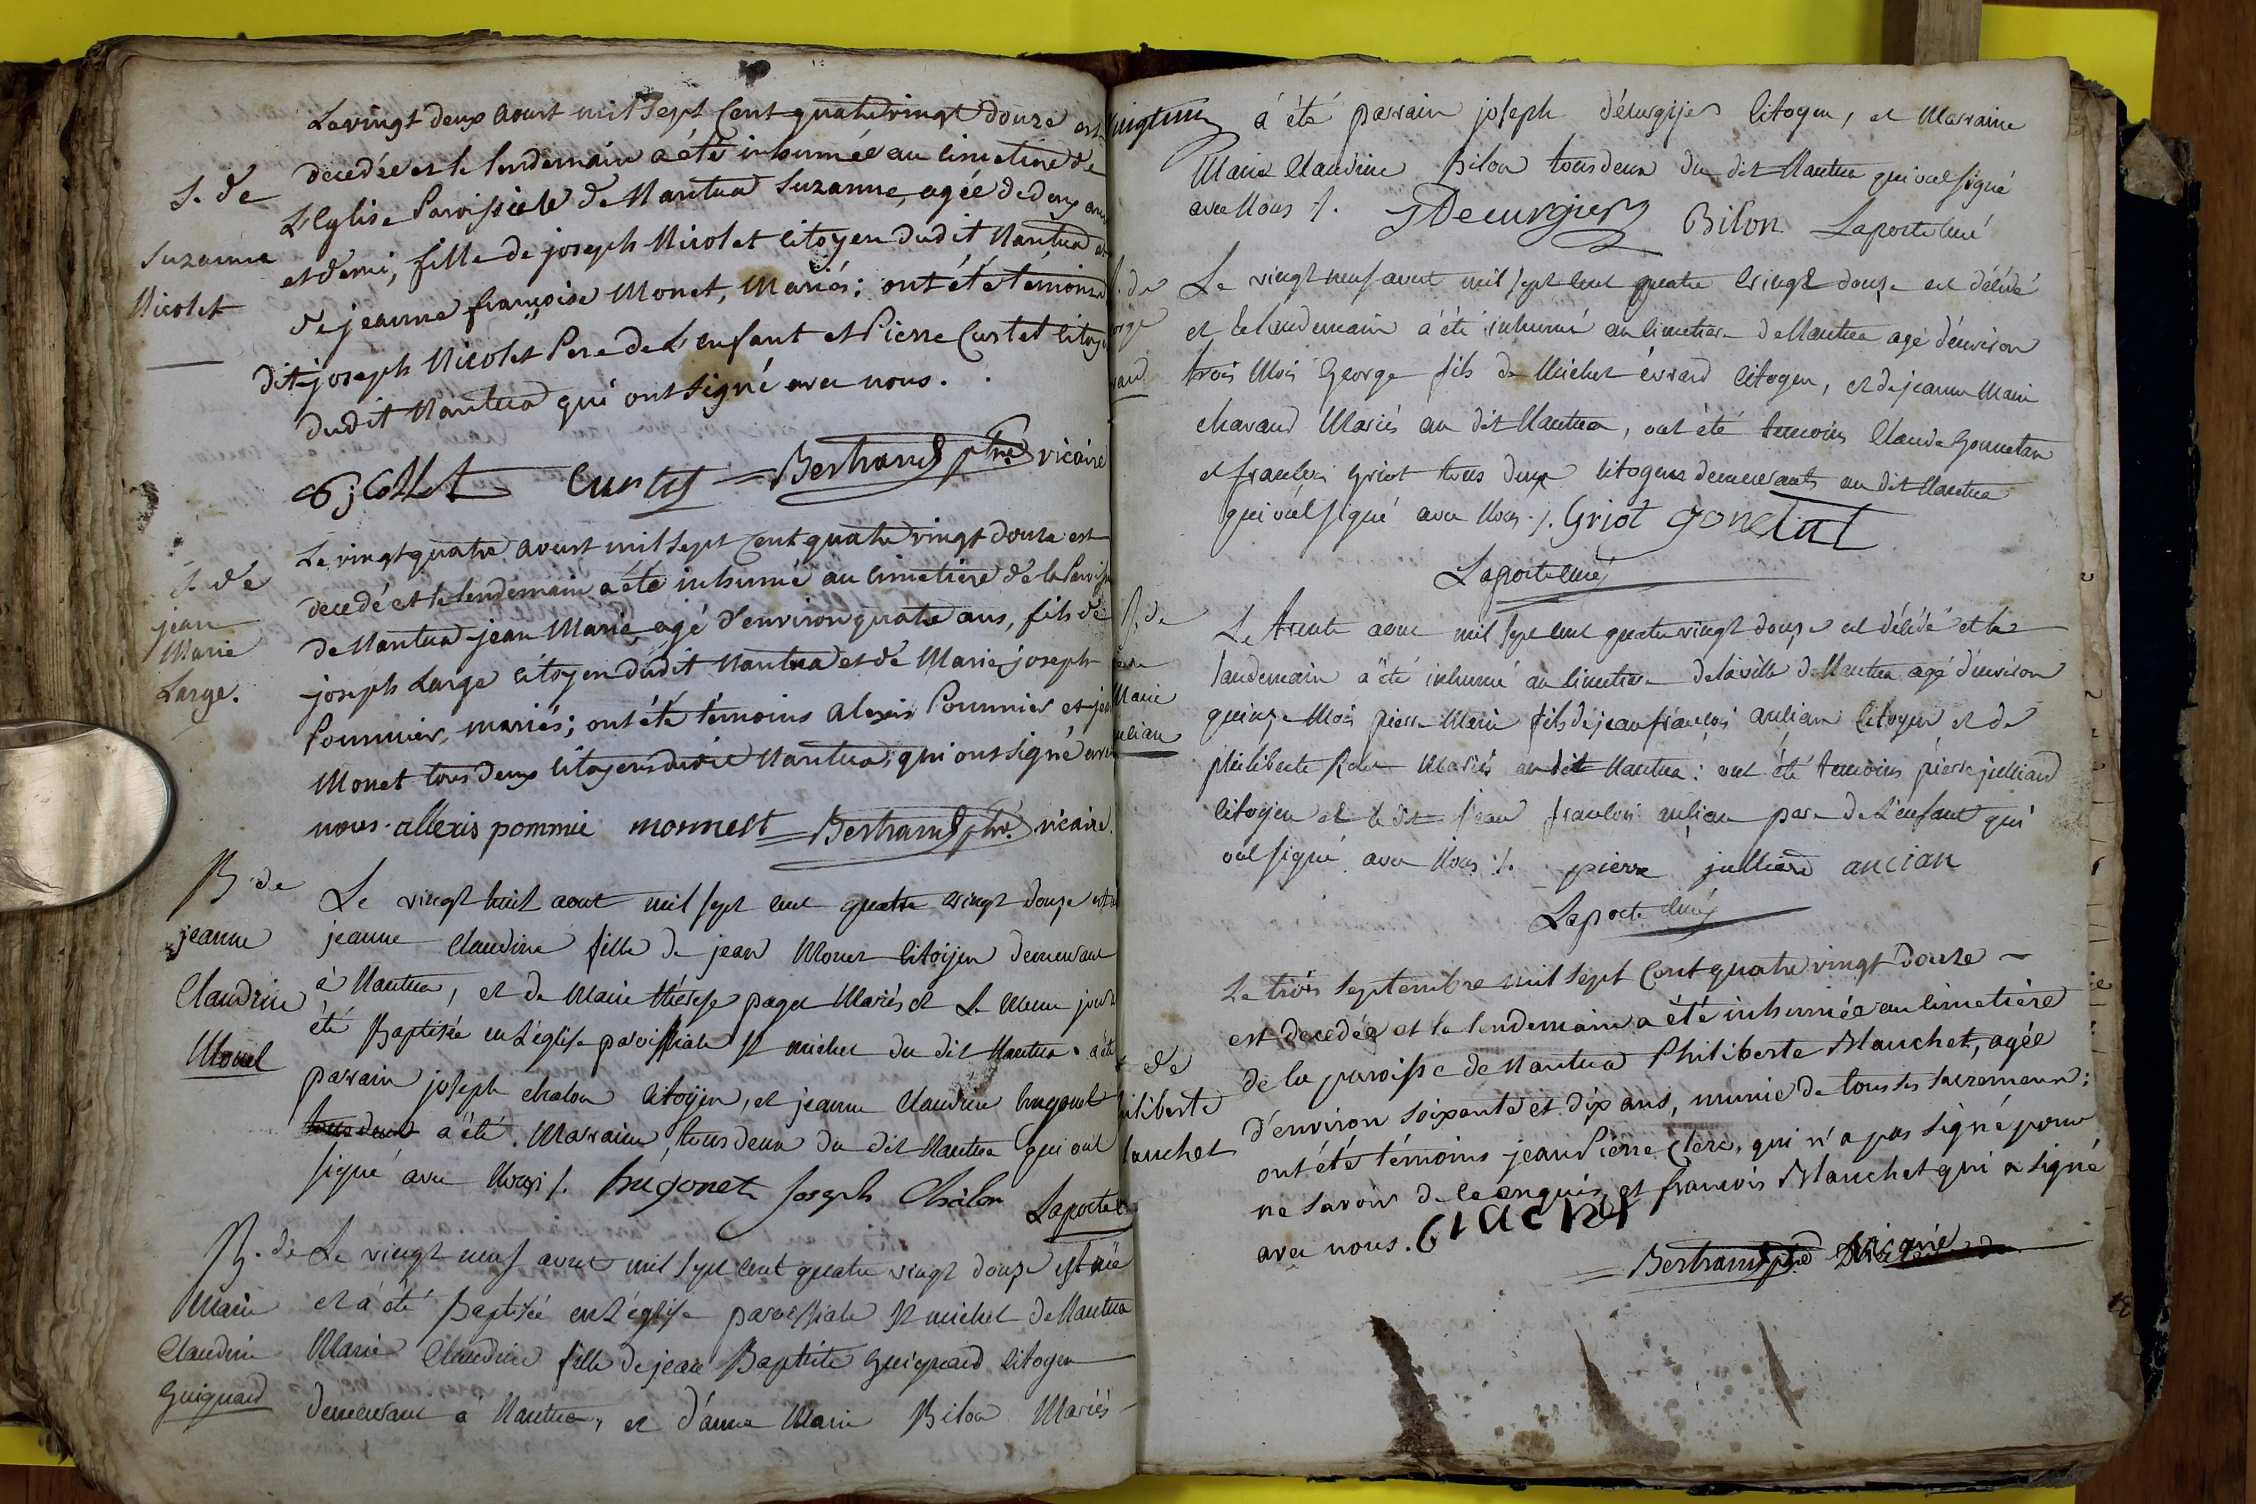 Le vingt deux aoust mil sept cent quatre vingt douze est
S. de
Suzanne
Nicolet
decedée et le lendemain a été inhumée au cimetiere de
L'Eglise Paroissiale de Nantua Suzanne, agée de deux ans
et demi, fille de joseph Nicolet citoyen dudit Nantua et
de jeanne françoise Monet, Mariés; ont été témoins
dit joseph Nicolet Pere de L'enfant et Pierre Curtet citoyen
dudit Nantua qui ont signé avec nous.
Curtet Bertrand ptre vicaire
S. de
jean
Marie
Large.
Le vingt quatre aoust mil sept cent quatre vingt douze est
decedé et le lendemain a été inhumé au cimetiere de la Paroisse
de Nantua jean Marie, agé d'environ quatre ans, fils de
joseph Large citoyen dudit Nantua et de Marie joseph
Pommier, mariés; ont été témoins Alexis Pommier et
Monet tous deux citoyens dudit Nantua, qui ont signé avec
nous. allexis pommie monnest Bertrand ptre vicaire.
B. de
jeanne
Claudine
Monet
Le vingt huit aout mil sept cent quatre vingt douze est
jeanne Claudine fille de jean Monet citoijen demeurant
à Nantua, et de Marie thérèse paget Mariés et Le meme jour
été Baptisée en L'église paroissiale St michel du dit Nantua. a été
parrain joseph chalon citoijen, et jeanne Claudine hugonet
tous deux a été Marraine, tous deux du dit Nantua qui ont
signé avec Nous /. hugonet Joseph Chalon Laporte
B. de
Marie
Claudine
Guignard
Le vingt neuf aout mil sept cent quatre vingt douze est née
et a été Baptisée en L'église paroissiale St michel de Nantua
Marie Claudine fille de jean Baptiste Guignard citoyen
demeurant à Nantua, et d'anne Marie Bilon Mariés
a été parrain joseph citoyen, et Marraine
Marie Claudine Bilon tous deux du dit Nantua qui ont signé
avec Nous /. Bilon Laporte Curé
Le vingt neuf aout mil sept cent quatre vingt douze est décédé
et le landemain a été inhumé au cimetiere de Nantua agé d'environ
trois Mois George fils de Michel évrard citoyen, et de jeanne Marie
chavand Mariés au dit Nantua, ont été temoins Claude
et francois Griot tous deux citoyens demeurants au dit Nantua
qui ont signé avec Nous /. Griot
Laporte Curé
Le trente aout mil sept cent quatre vingt douze est décédé et le
landemain a été inhumé au cimetiere de la ville de Nantua agé d'environ
quinze Mois pierre Marie fils de jean françois ancian citoyen et de
philiberte Mariés au dit Nantua: ont été temoins pierre julliard
citoyen et le dit jean francois ancian pere de L'enfant qui
ont signé avec Nous /. pierre julliard ancian
Laporte Curé
de
iliberte
lanchet
Le trois septembre mil sept cent quatre vingt douze
est decedée et le lendemain a été inhumée au cimetière
de la paroisse de Nantua Philiberte Blanchet, agée
d'environ soixante et dix ans, munie de tous les sacremens;
ont été témoins jean Pierre Clerc, qui n'a pas signé pour
ne savoir de ce enquis, et francois Blanchet qui a signé
avec nous.
Bertrand ptre vicaire